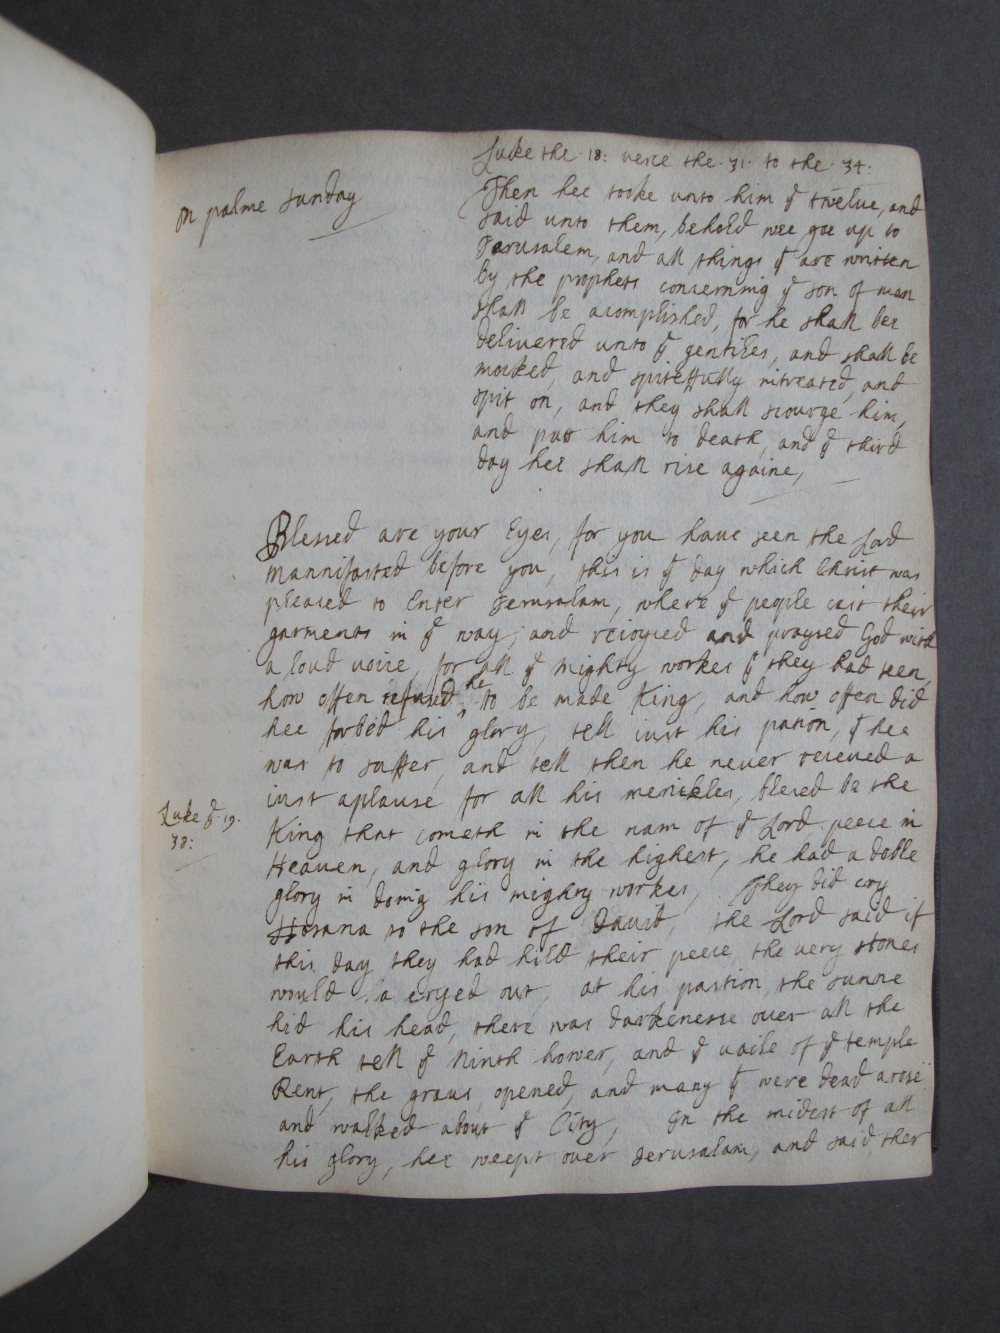 Luke the · 18: verce the · 31 · to the · 34:
on palme sunday
Then hee tooke unto him ye twelue, and
said unto them, behold wee goe up to
Jerusalem, and all things yt are written
by the prophets concerning ye son of man
shall be acomplished, for he shall bee
delivered unto ye gentiles, and shall be
mocked, and spiteffully intreated, and
spit on, and they shall scourge him,
and putt him to death, and ye third
day hee shall rise againe,
Blessed are your Eyes, for you haue seen the Lord
mannifasted before you, this is ye day which Christ was
pleaced to Enter Jerusalam, where ye people cast their
garments in ye way; and reioyced and praysed God with
a loud uoice, for all ye mighty workes yt they had seen,
how offen refused he to be made King, and how offen did
hee forbid his glory, tell iust his pasion, yt hee
was to suffer, and tell then he never receued a
iust aplause for all his merickles, blesed be the
King that cometh in the nam of ye Lord peece in
Luke ye · 19 ·
38:
Heauen, and glory in the highest, he had a doble
glory in doing his mighty workes, They did cry
Hosana to the son of Dauid, the Lord said if
this day they had hild their peece, the uery stones
would a cryed out, at his pastion, the sunne
hid his head, there was darkenesse over all the
Earth tell ye Ninth hower, and ye uaile of ye temple
Rent, the graus opened, and many yt were dead arose
and walked about ye City, In the midest of all
his glory, hee weept over Jerusalam, and said, ther